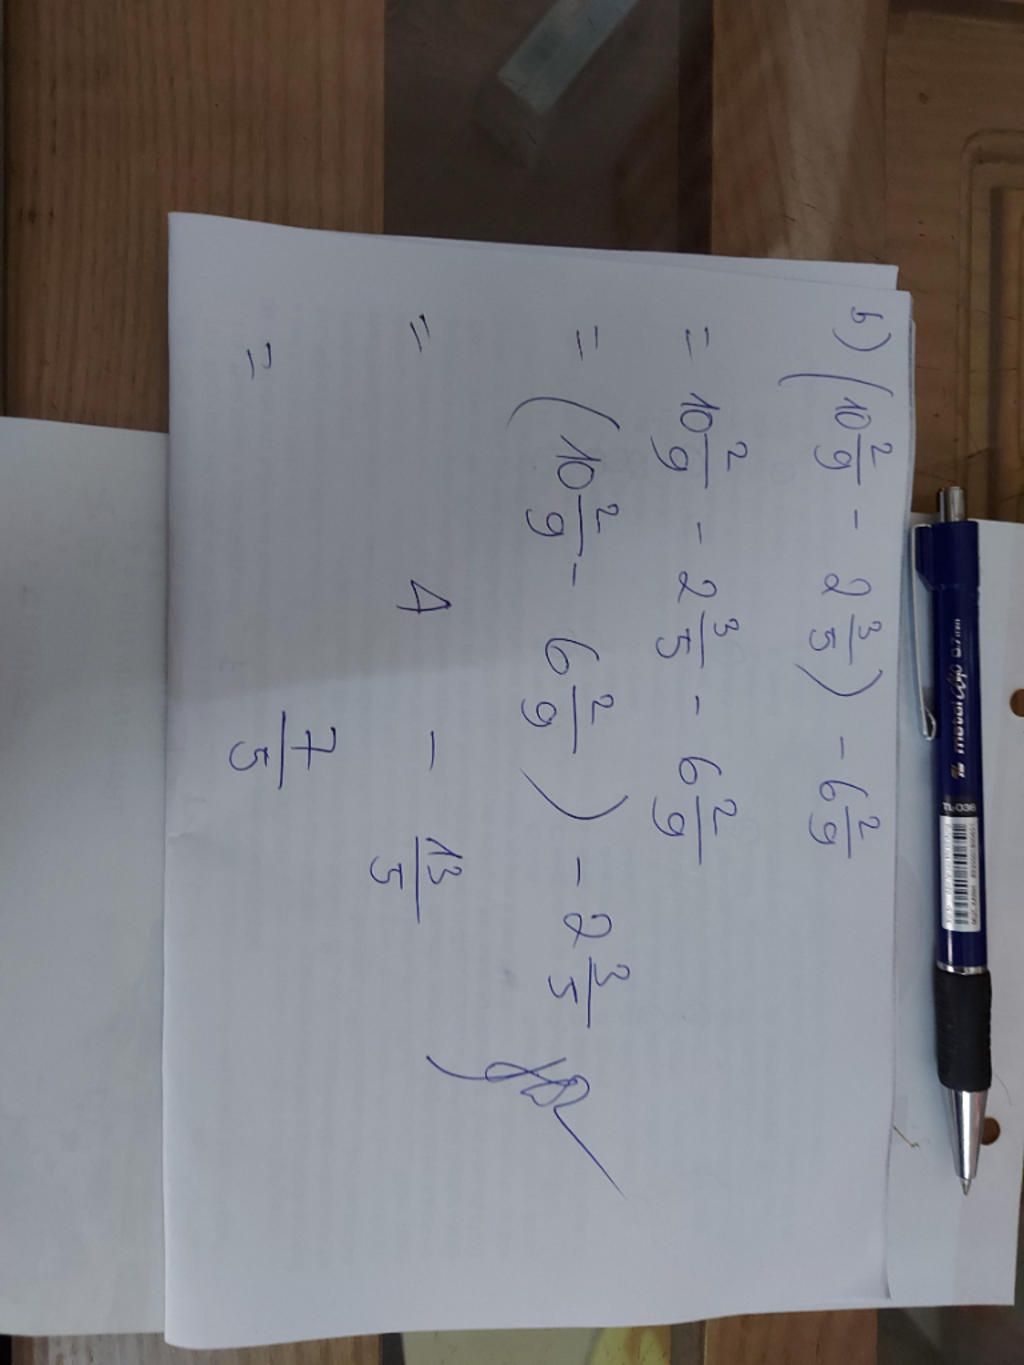 b) (10 2/9 - 2 3/5) - 6 2/9
= 10 2/9 - 2 3/5 - 6 2/9
= (10 2/9 - 6 2/9) - 2 3/5
= 4 - 13/5
= 7/5
TL-036